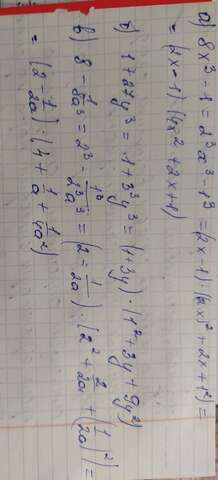 а) 8x³ - 1 = 2³x³ - 1³ = (2x - 1) · ((2x)² + 2x + 1²) =
= (2x - 1) · (4x² + 2x + 1)
б) 1 + 27y³ = 1 + 3³y³ = (1 + 3y) · (1² + 3y + 9y²)
в) 8 - 1/8a³ = 2³ - 1³/2³a³ = (2 - 1/2a) · (2² + 2/2a + (1/2a)²) =
= (2 - 1/2a) · (4 + 1/a + 1/4a²)